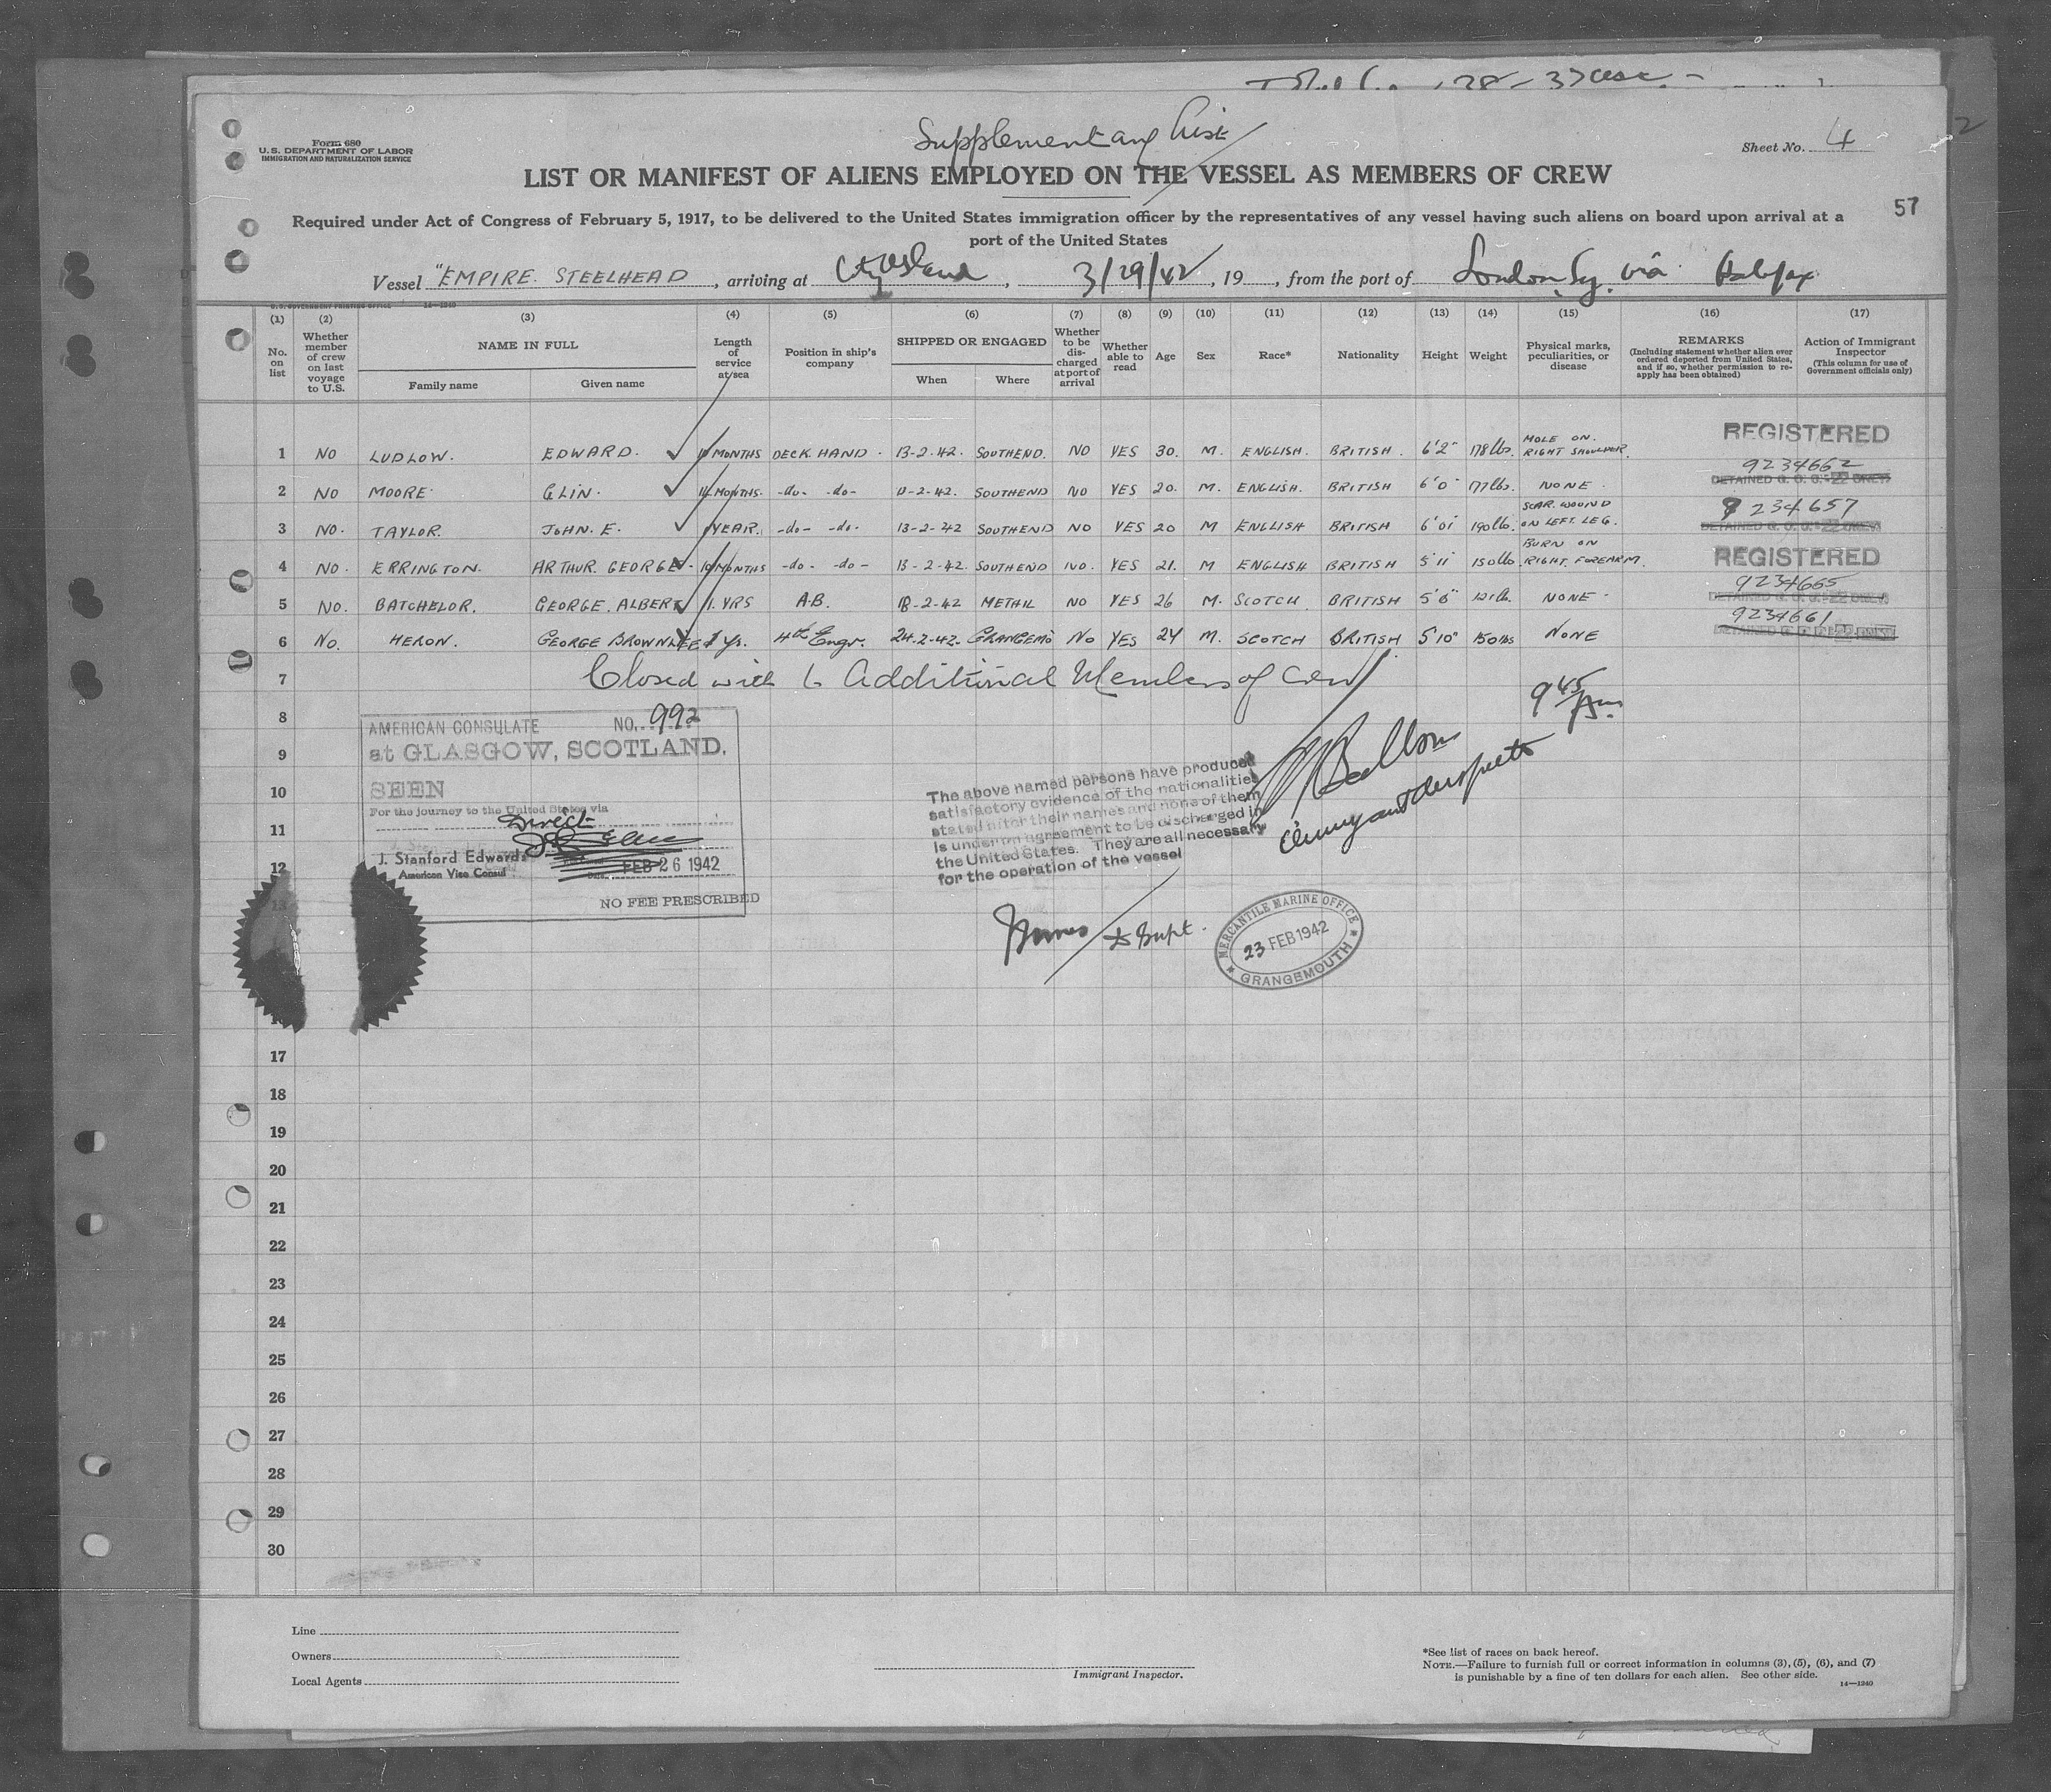 Supplementary List
Form 680
U.S. DEPARTMENT OF LABOR
IMMIGRATION AND NATURALIZATION SERVICE
Sheet No. 4
LIST OR MANIFEST OF ALIENS EMPLOYED ON THE VESSEL AS MEMBERS OF CREW
57
Required under Act of Congress of February 5, 1917, to be delivered to the United States immigration officer by the representatives of any vessel having such aliens on board upon arrival at a
port of the United States
Vessel "EMPIRE STEELHEAD, arriving at City Island, 3/29/42, 19, from the port of London, via Halifax
U.S. GOVERNMENT PRINTING OFFICE 14—1240
(1) (2) (3) (4) (5) (6) (7) (8) (9) (10) (11) (12) (13) (14) (15) (16) (17)
No. on list
Whether member of crew on last voyage to U.S.
NAME IN FULL
Family name
Given name
Length of service at sea
Position in ship's company
SHIPPED OR ENGAGED
When
Where
Whether to be discharged at port of arrival
Whether able to read
Age
Sex
Race*
Nationality
Height
Weight
Physical marks, peculiarities, or disease
REMARKS
(Including statement whether alien ever ordered deported from United States, and if so, whether permission to reapply has been obtained)
Action of Immigrant Inspector
(This column for use of Government officials only)
1 NO LUDLOW. EDWARD. MONTHS DECK HAND. 13-2-42. SOUTHEND. NO YES 30. M. ENGLISH. BRITISH. 6'2" 178 lbs. MOLE ON RIGHT SHOULDER. REGISTERED
2 NO MOORE GLIN. MONTHS. -do- -do- 2-42. SOUTHEND NO YES 20. M. ENGLISH. BRITISH 6'0" 177 lbs. NONE. 9234662 DETAINED
3 NO. TAYLOR. JOHN. E. 1 YEAR. -do- -do- 13-2-42 SOUTHEND NO YES 20 M ENGLISH BRITISH 190 lb. SCAR WOUND ON LEFT LEG. 9234657 DETAINED
4 NO. ERRINGTON. ARTHUR. GEORGE. 10 MONTHS -do- -do- 13-2-42. SOUTHEND NO. YES 21. M ENGLISH BRITISH 5'11" 150 lb BURN ON RIGHT FOREARM. REGISTERED
5 NO. BATCHELOR. GEORGE. ALBERT YRS A.B. 18-2-42 METHIL NO YES 26 M. SCOTCH BRITISH NONE. 9234665 DETAINED
6 NO. HERON. GEORGE BROWNLEE Yr. 4th Engr. 24-2-42. NO YES 24 M. SCOTCH BRITISH 5'10" 150 lbs NONE 9234661 DETAINED
7 Closed with 6 Additional Members of Crew
9 45 Am.
8
9
10
11
12
13
17
18
19
20
21
22
23
24
25
26
27
28
29
30
AMERICAN CONSULATE NO. 992
at GLASGOW, SCOTLAND.
SEEN
For the journey to the United States via
Direct
J. Stanford Edwards
American Vice Consul
FEB 26 1942
NO FEE PRESCRIBED
The above named persons have produced
satisfactory evidence of the nationalities
stated after their names and none of them
is under an agreement to be discharged in
the United States. They are all necessary
for the operation of the vessel
Supt.
MERCANTILE MARINE OFFICE
23 FEB 1942
GRANGEMOUTH
Line
Owners
Local Agents
Immigrant Inspector.
*See list of races on back hereof.
NOTE.—Failure to furnish full or correct information in columns (3), (5), (6), and (7)
is punishable by a fine of ten dollars for each alien. See other side.
14—1240